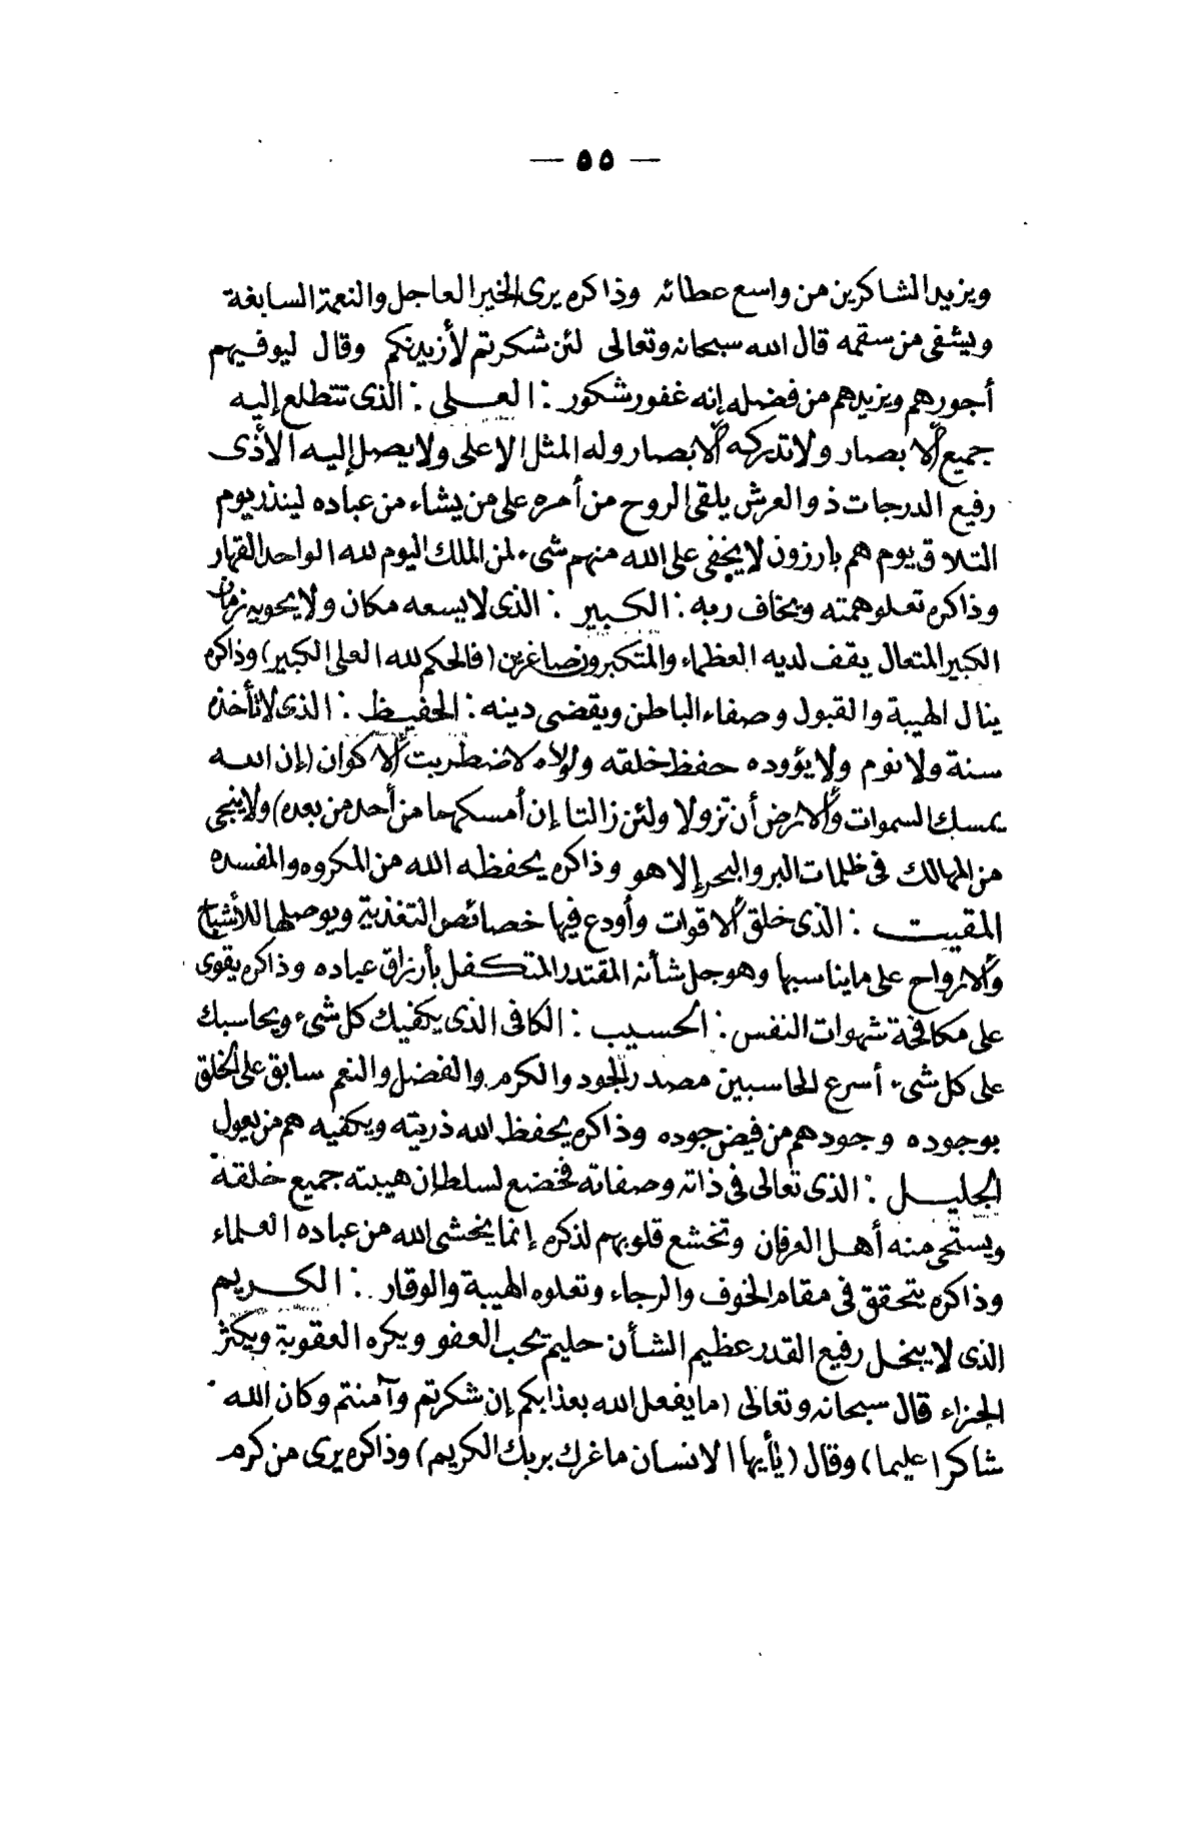 — ٥٥ —
ويزيد الشاكرين من واسع عطائه وذاكره يرى الخير العاجل والنعمة السابغة
ويشفى من سقمه قال الله سبحانه وتعالى لئن شكرتم لأزيدنكم وقال ليوفيهم
أجورهم ويزيدهم من فضله إنه غفور شكور : العلى : الذى تتطلع إليه
جميع الأبصار ولا تدركه الأبصار وله المثل الاعلى ولا يصل إليه الأذى
رفيع الدرجات ذو العرش يلقى الروح من أمره على من يشاء من عباده لينذر يوم
التلاق يوم هم بارزون لا يخفى على الله منهم شىء لمن الملك اليوم لله الواحد القهار
وذاكره تعلو همته ويخاف ربه : الكبير : الذى لا يسعه مكان ولا يحويه زمان
الكبير المتعال يقف لديه العظماء والمتكبرون صاغرين (فالحكم لله العلى الكبير) وذاكره
ينال الهيبة والقبول وصفاء الباطن ويقضى دينه : الحفيظ : الذى لا تأخذه
سنة ولا نوم ولا يؤوده حفظ خلقه ولولاه لاضطربت الأكوان (إن الله
يمسك السموات والأرض أن تزولا ولئن زالتا إن أمسكهما من أحد من بعده) ولا ينجى
من المهالك فى ظلمات البر والبحر إلا هو وذاكره يحفظه الله من المكروه والمفسده
المقيت : الذى خلق الأقوات وأودع فيها خصائص التغذية ويوصلها للأشباح
والأرواح على ما يناسبها وهو جل شأنه المقتدر المتكفل بأرزاق عباده وذاكره يقوى
على مكافحة شهوات النفس : الحسيب : الكافى الذى يكفيك كل شىء ويحاسبك
على كل شىء أسرع الحاسبين مصدر الجود والكرم والفضل والنعم سابق على الخلق
بوجوده وجودهم من فيض جوده وذاكره يحفظ الله ذريته ويكفيه هم من يعول
الجليل : الذى تعالى فى ذاته وصفاته فخضع لسلطان هيبته جميع خلقه
ويستحى منه أهل العرفان وتخشع قلوبهم لذكره إنما يخشى الله من عباده العلماء
وذاكره يتحقق فى مقام الخوف والرجاء وتعلوه الهيبة والوقار : الكريم
الذى لا يبخل رفيع القدر عظيم الشأن حليم يحب العفو ويكره العقوبة ويكثر
الجزاء قال سبحانه وتعالى (ما يفعل الله بعذابكم إن شكرتم وآمنتم وكان الله
شاكرا عليما) وقال (يأيها الانسان ما غرك بربك الكريم) وذاكره يرى من كرم